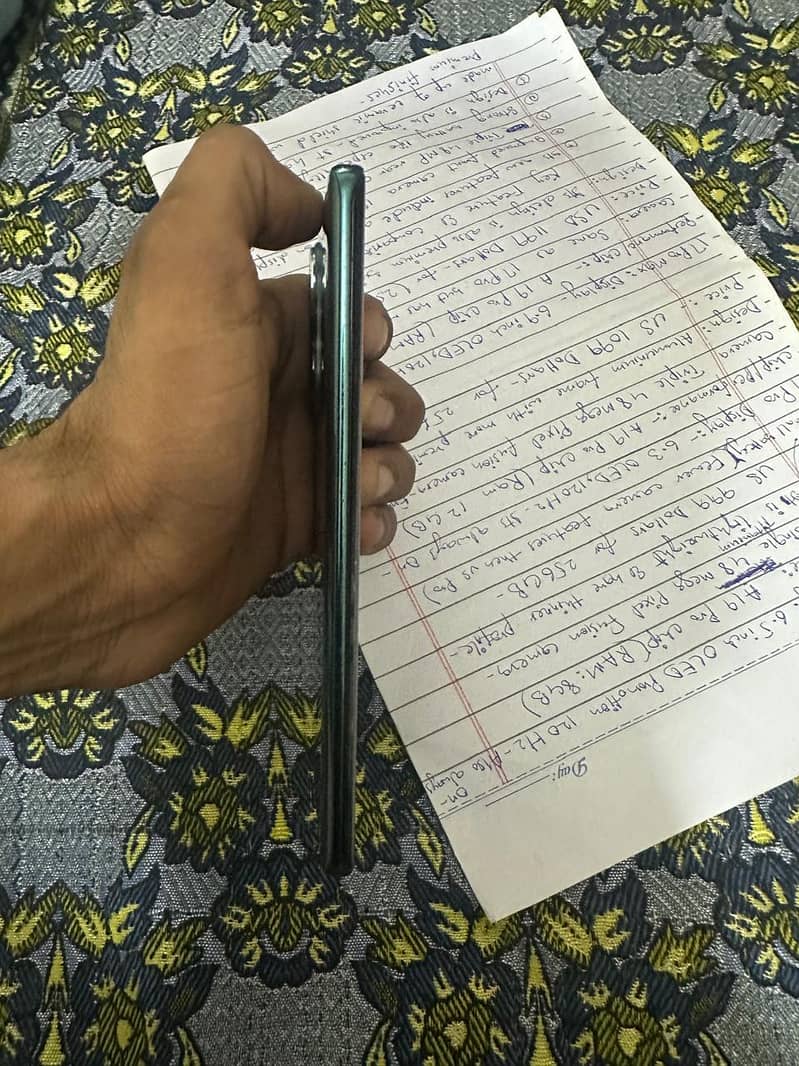 Day:
: 6.5 inch OLED Promotion 120 Hz - Also always on -
A19 Pro chip (RAM: 8GB)
ingle 48 mega Pixel fusion camera -
is lightweight & more thinner profile -
US 999 Dollars for 256GB -
(Fewer camera features then vs Pro)
Pro Display:- 6.3 OLED, 120 Hz - Its always on -
chip/Performance: A19 Pro chip (Ram 12 GB)
- camera Triple 48 mega Pixel fusion camera -
- Design: Aluminium frame with more premi
Price: US 1099 Dollars - for 256
17 Pro Max: Display - 6.9 inch OLED, 120H
- Performance/chip:- A19 Pro chip (RAM
- Camera- Same as 17 Pro but
Price: USD 1199 Dollars for (25
- Design:- Its design is also premium
Key Feature & compariso
New features include
① Improved front camera
② Triple 48MP rear
③ Strong battery life
④ Design is also improved - It h
made up of ceramic shield
Premium finishes -